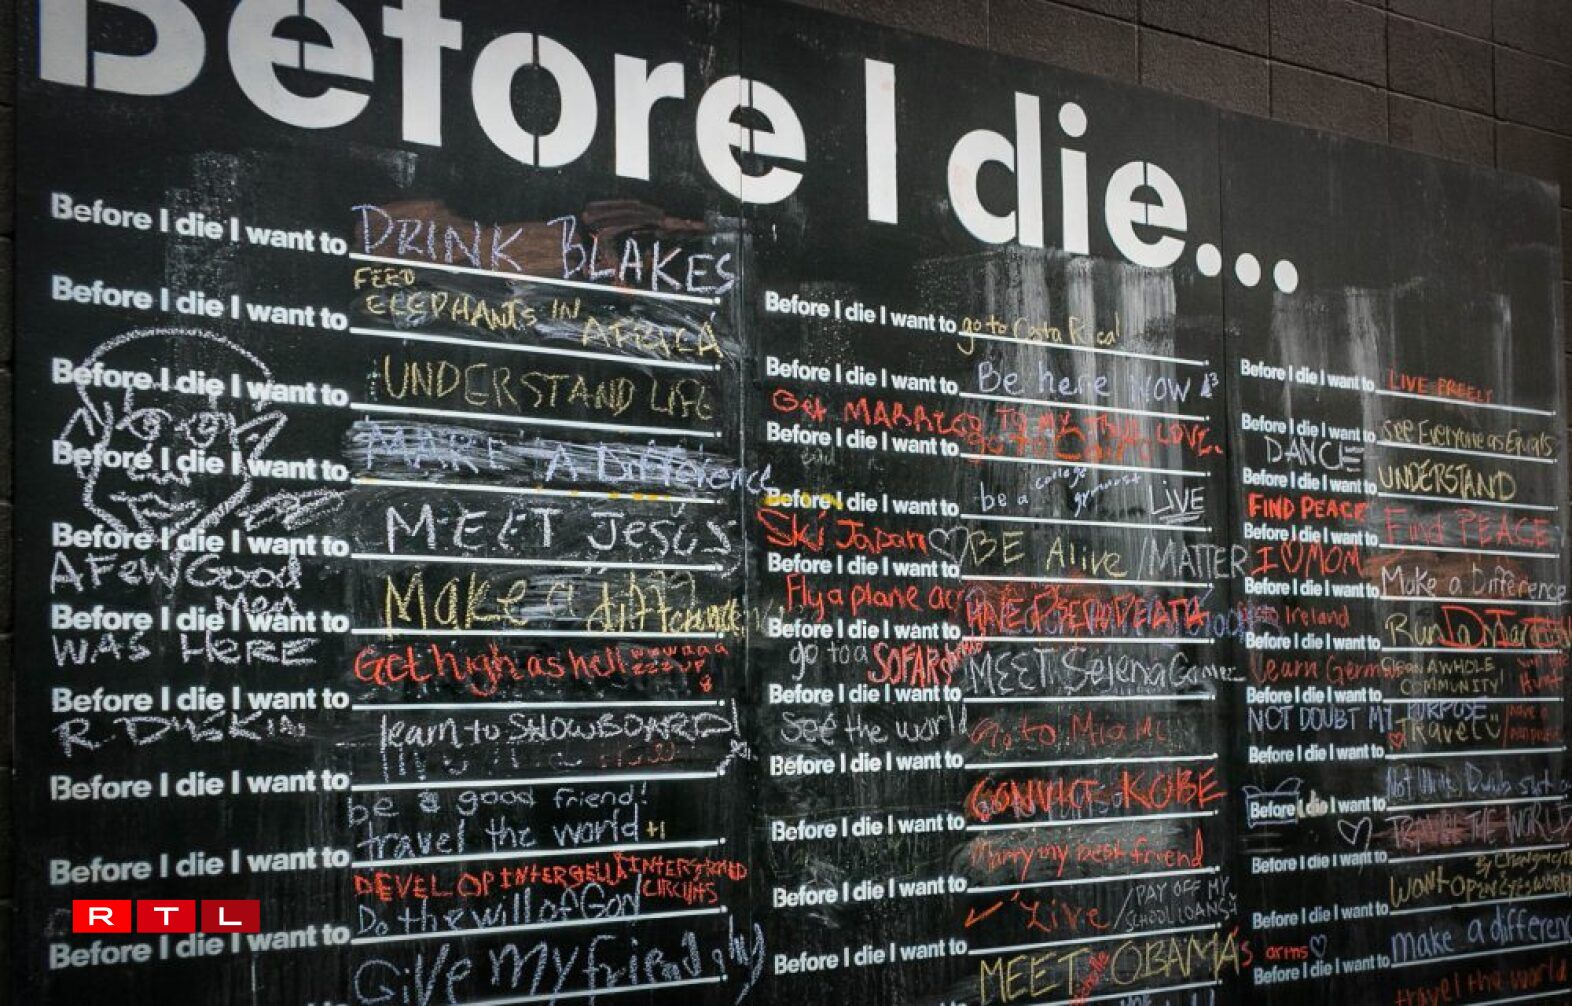 Before I die...
Before I die I want to DRINK BLAKES
FEED
Before I die I want to ELEPHANTS IN AFRICA
Before I die I want to UNDERSTAND LIFE
Before I die I want to MAKE A Difference
Before I die I want to MEET JESUS
A FEW GOOD
Men
Before I die I want to Make a difference
WAS HERE
Get high as hell
Before I die I want to
R. DUSKIN
learn to SNOWBOARD
Before I die I want to
be a good friend!
travel the world +1
Before I die I want to
DEVELOP
CIRCUITS
Do the will of God
Before I die I want to
Give my friend
Before I die I want to go to
Before I die I want to Be here NOW
Get MARRIED TO MY TRUE LOVE.
Before I die I want to go to
be a college gymnast LIVE
Before I die I want to
Ski Japan BE Alive / MATTER
Before I die I want to
Fly a plane
Before I die I want to
go to a SOFAR MEET Selena Gomez
Before I die I want to
See the world Go to Miami
Before I die I want to
CONVICT KOBE
Before I die I want to
Marry my best friend
Before I die I want to
Live / PAY OFF MY
SCHOOL LOANS
Before I die I want to
MEET OBAMA'S
Before I die I want to LIVE FREELY
Before I die I want to See Everyone as Equals
DANCE
Before I die I want to UNDERSTAND
FIND PEACE
Before I die I want to Find PEACE
I ♡ MOM
Before I die I want to Make a Difference
Ireland
Before I die I want to Run a
Learn German
A WHOLE
COMMUNITY!
Before I die I want to
NOT DOUBT MY PURPOSE
Travel
Before I die I want to
Before I die I want to
TRAVEL THE WORLD
Before I die I want to
Before I die I want to
arms ♡ make a difference
Before I die I want to
travel the world
RTL